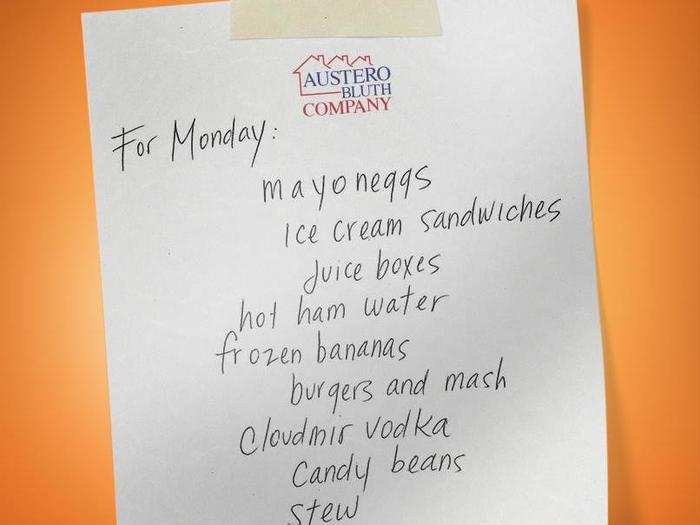 AUSTERO
BLUTH
COMPANY
For Monday:
mayoneggs
Ice cream sandwiches
Juice boxes
hot ham water
frozen bananas
burgers and mash
Cloudmir vodka
Candy beans
Stew